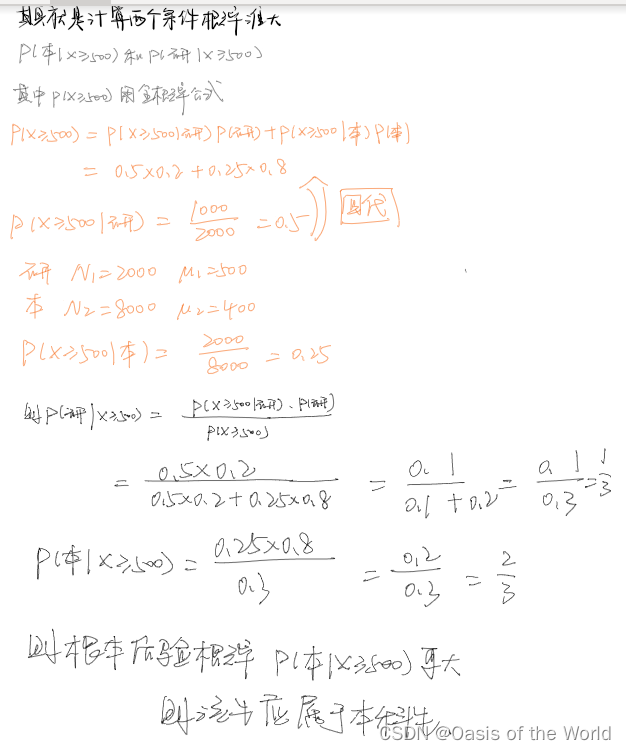 其实就是计算两个条件概率谁大
P(本|X≥500)和P(研|X≥500)
其中P(X≥500)用全概率公式
P(X≥500) = P(X≥500|研)P(研)+P(X≥500|本)P(本)
= 0.5×0.2+0.25×0.8
P(X≥500|研) = 1000/2000 = 0.5 回代
研 N1=2000 μ1=500
本 N2=8000 μ2=400
P(X≥500|本) = 2000/8000 = 0.25
则P(研|X≥500) = P(X≥500|研)·P(研)/P(X≥500)
= 0.5×0.2/0.5×0.2+0.25×0.8 = 0.1/0.1+0.2 = 0.1/0.3 = 1/3
P(本|X≥500) = 0.25×0.8/0.3 = 0.2/0.3 = 2/3
则根本后验概率 P(本|X≥500)更大
则该生应属于本科生
CSDN @Oasis of the World